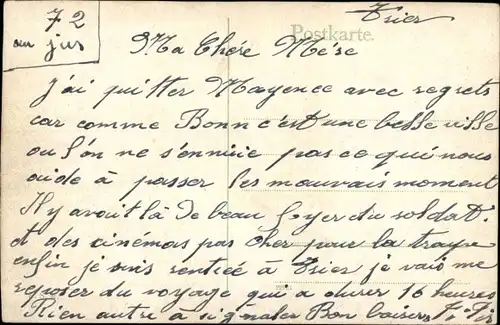 72
au jus
Trier
Postkarte.
Ma Chére Mére
J'ai quitter Mayence avec regrets
car comme Bonn c'est une belle ville
ou l'on ne s'ennuie pas ce qui nous
aide à passer les mauvais moment
Il y avait là de beau foyer du soldat.
et des cinémas pas cher pour la troupe
enfin je suis rentrée à Trier je vais me
reposer du voyage qui a durer 16 heures
Rien autre à signaler Bon baisers